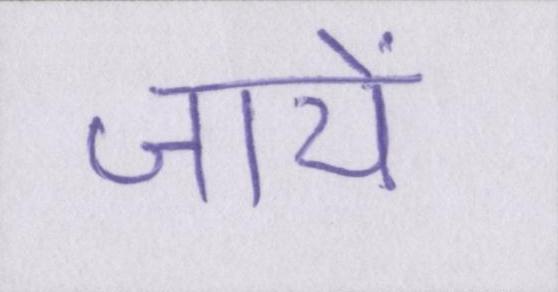 जायें